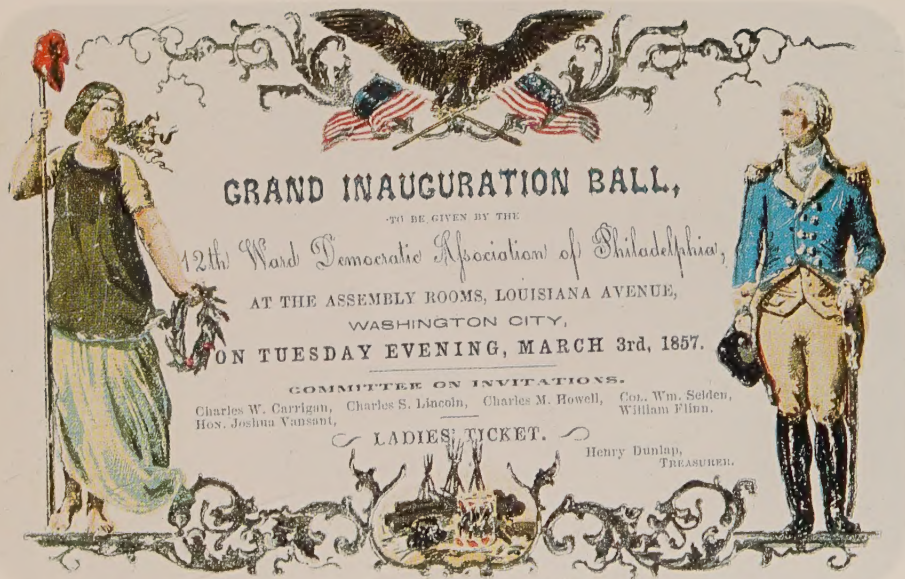 GRAND INAUGURATION BALL,
TO BE GIVEN BY THE
12th Ward Democratic Association of Philadelphia,
AT THE ASSEMBLY ROOMS, LOUISIANA AVENUE,
WASHINGTON CITY,
ON TUESDAY EVENING, MARCH 3rd, 1857.
COMMITTEE ON INVITATIONS.
Charles W. Carrigan, Charles S. Lincoln, Charles M. Howell, Col. Wm. Selden,
Hon. Joshua Vansant, William Flinn.
LADIES' TICKET.
Henry Dunlap,
TREASURER.